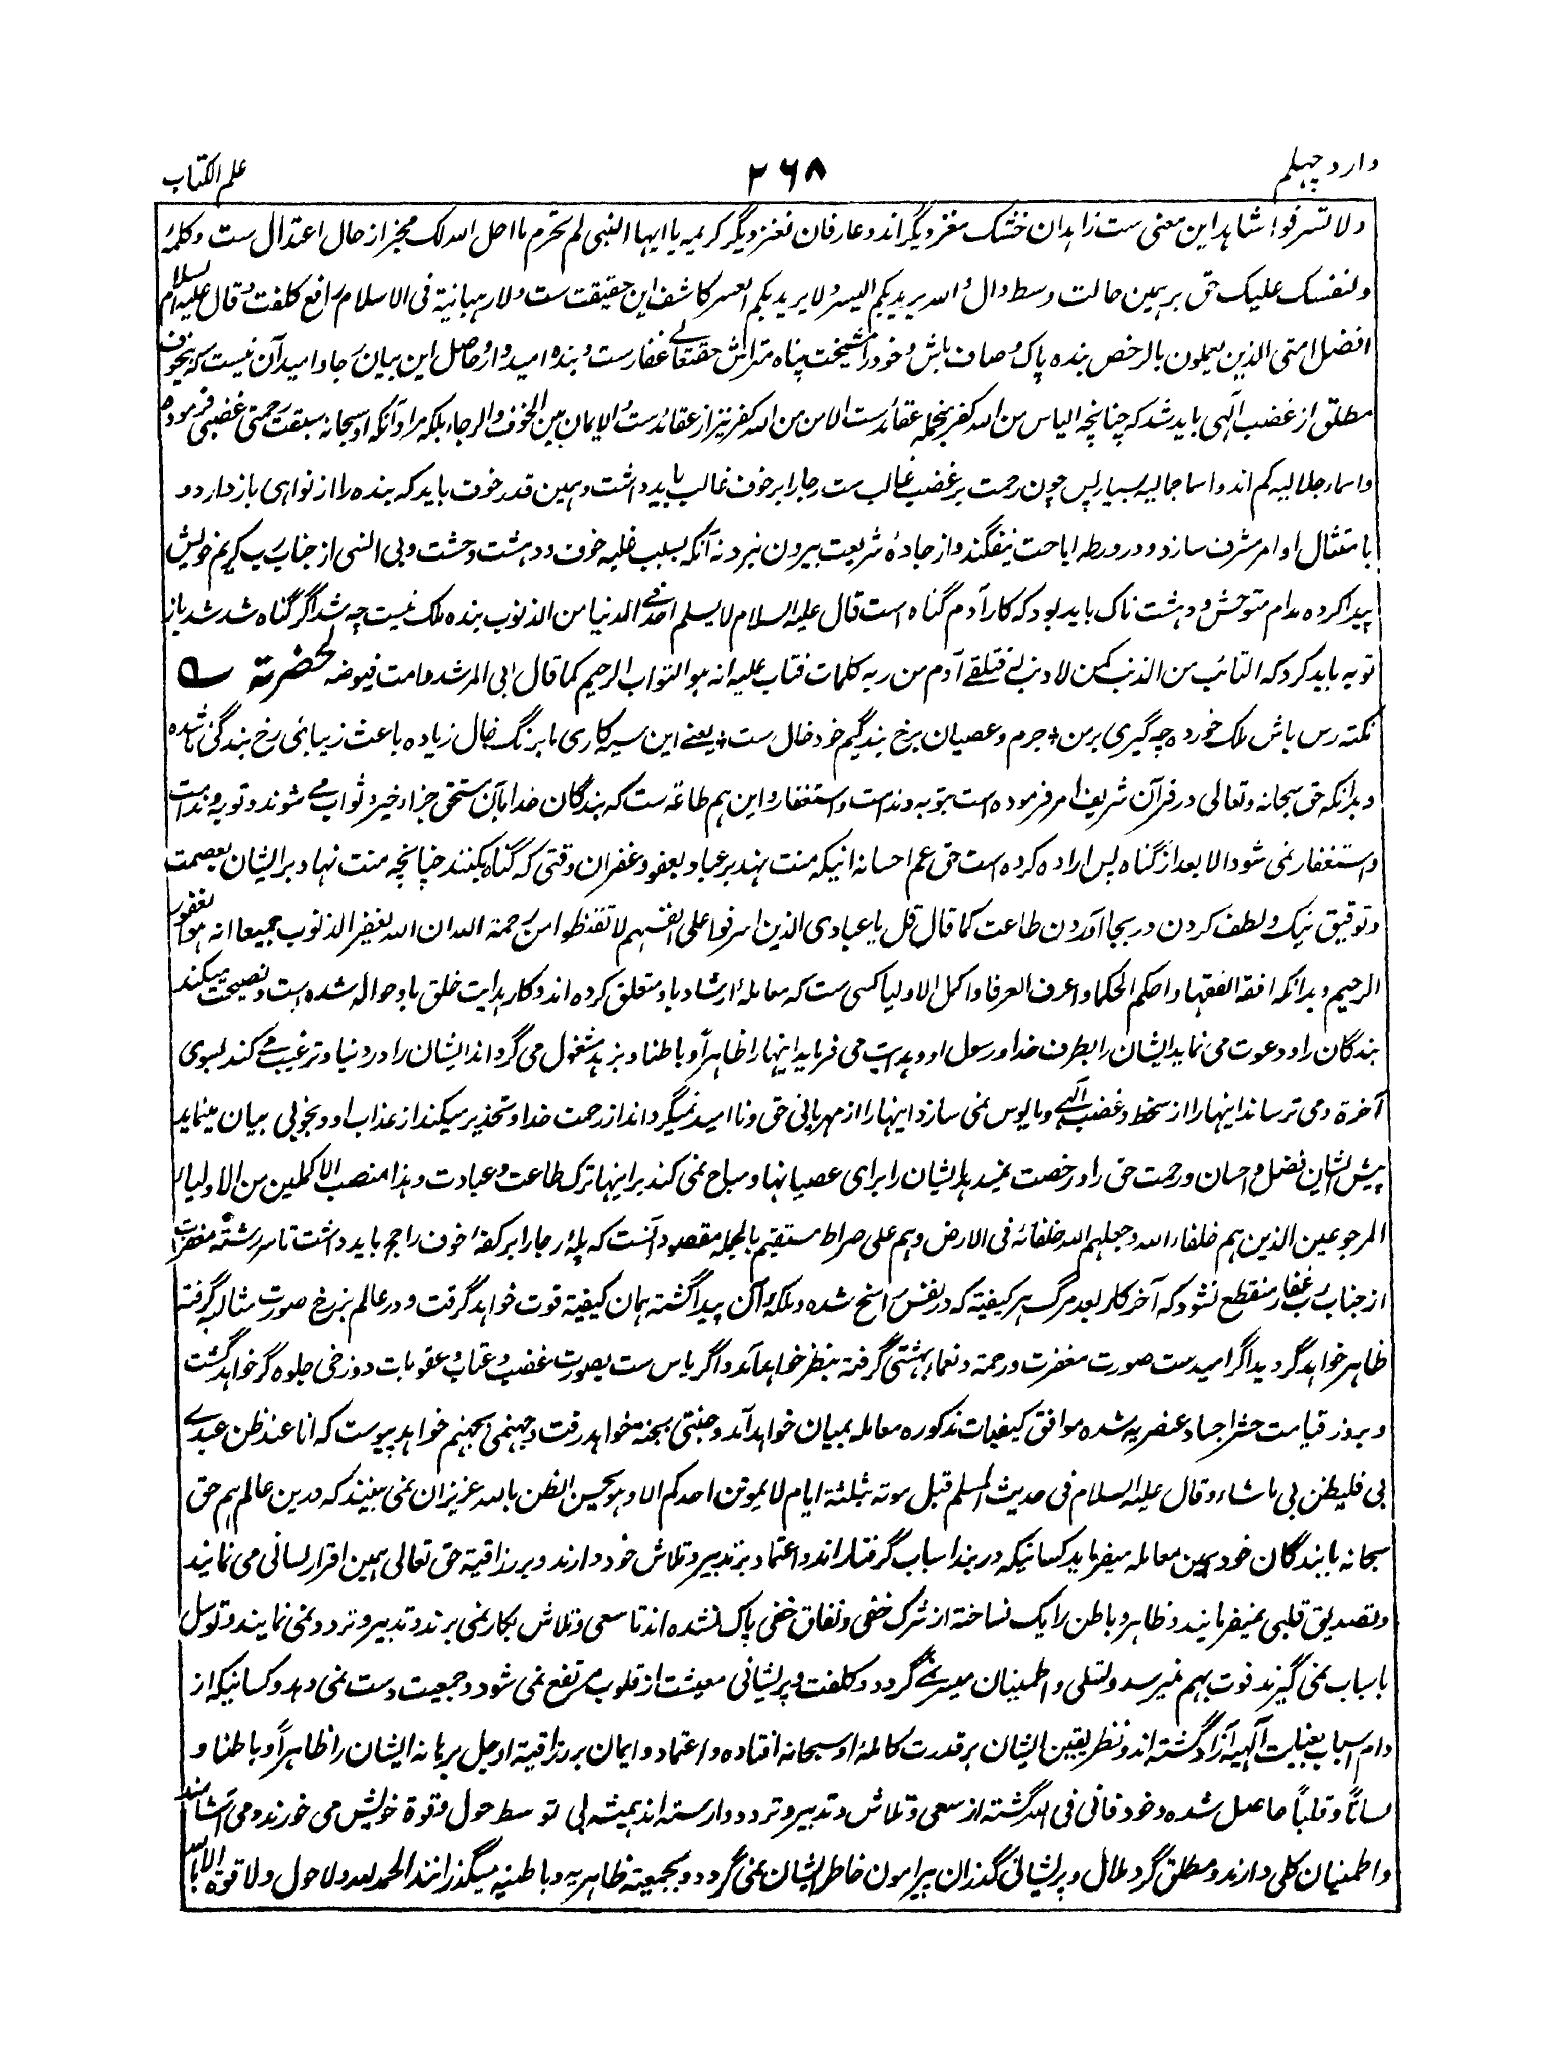 وارد چهلم
۲۶۸
علم الکتاب
ولا تسرفوا شاهد این معنی ست زاهدان خشک مغز دیگر اند و عارفان نغز دیگر کریمه یا ایها النبی لم تحرم ما احل الله لک مخبر از حال اعتدال ست و کلمهٔ
ولنفسک علیک حق بر همین حالت وسط دال و الله یرید بکم الیسر و لا یرید بکم العسر کاشف این حقیقت ست ولا رهبانیة فی الاسلام رافع کلفت و قال علیه السلام
افضل امتی الذین یعملون بالرخص بنده پاک و صاف باش و خود را مشیخت پناه متراش حقتعالے غفار ست و بنده امیدوار حاصل این بیان رجا و امید آن نیست که بیخوف
مطلق از غضب الهی باید شد که چنانچه الیاس من الله کفر بجمله عقائد ست الامن من الله کفر نیز از عقائد ست و الایمان بین الخوف والرجا بلکه مراد آنکه او سبحانه سبقت رحمتی غضبی فرموده
و اسماء جلالیه کم اند و اسما جمالیه بسیار پس چون رحمت بر غضب غالب ست رجا را بر خوف غالب باید داشت و همین قدر خوف باید که بنده را از نواهی باز دارد و
بامتثال اوامر مشرف سازد و در ورطه اباحت نیفگند و از جادهٔ شریعت بیرون نبرد نه آنکه بسبب غلبه خوف و دهشت وحشت و بی انسی از جناب رب کریم خویش
پیدا کرده مدام متوحش و دهشت ناک باید بود که کار آدم گناه است قال علیه السلام لا یسلم احد فے الدنیا من الذنوب بنده ملک نیست چه شد اگر گناه شد شد باز
توبه باید کرد که التائب من الذنب کمن لا ذنب لے فتلقے آدم من ربه کلمات فتاب علیه انه هو التواب الرحیم کما قال ابی المرشد دامت فیوضه لحضرته
نکته رس باش ملک خورده چه گیری بر من ✣ جرم و عصیان برخ بندگیم خود خال ست ✣ یعنے این سیه کاری ما برنگ خال زیاده باعث زیبائی رخ بندگی ما شده
و بدانکه حق سبحانه و تعالی در قرآن شریف امر فرموده است بتوبه و ندامت و استغفار و این هم طاعه ست که بندگان خدا بآن مستحق جزاء خیر و ثواب مے شوند و توبه و ندامت
و استغفار نمی شود الا بعد از گناه پس اراده کرده است حق عم احسانه اینکه منت نهد بر عباد بعفو و غفران وقتی که گناه بکنند چنانچه منت نهاد بر ایشان بعصمت
و توفیق نیک و لطف کردن در بجا آوردن طاعت کما قال قل یا عبادی الذین اسرفوا علی انفسهم لا تقنطوا من رحمة الله ان الله یغفر الذنوب جمیعا انه هو الغفور
الرحیم و بدانکه افقه الفقها و احکم الحکما و اعرف العرفا و اکمل الاولیا کسی ست که معاملهٔ ارشاد باو متعلق کرده اند و کار هدایت خلق باو حواله شده است و نصیحت میکند
بندگان را و دعوت می نماید ایشان را بطرف خدا و رسول او و هدایت می فرماید اینها را ظاهراً و باطنا و بزهد مشغول می گرداند ایشان را در دنیا و ترغیب مے کند بسوی
آخرة و می ترساند اینها را از سخط و غضب الٰهے و مایوس نمی سازد اینها را از مهربانی حق و ناامید نمیگرداند از رحمت خدا و تحذیر میکند از عذاب او و بخوبی بیان مینماید
پیش ایشان فضل و احسان و رحمت حق را و رخصت نمیدهد ایشان را برای عصیانها و مباح نمی کند بر اینها ترک طاعت و عبادت و هذا منصب الاکملین من الاولیاء
المرجوعین الذین هم خلفاء الله و جعلهم الله خلفائه فی الارض و هم علی صراط مستقیم بالجمله مقصود آنست که پلهٔ رجا را بر کفهٔ خوف راجح باید داشت تا سررشتهٔ مغفرت
از جناب رب غفار منقطع نشود که آخر کار بعد مرگ هر کیفیته که در نفس راسخ شده و ملکهٔ آن پیدا گشته همان کیفیة قوت خواهد گرفت و در عالم برزخ صورت مثالیه گرفته
ظاهر خواهد گردید اگر امید ست صورت مغفرت و رحمة و نعماء بهشتی گرفته بنظر خواهد آمد و اگر یاس ست بصورت غضب و عتاب و عقوبات دوزخی جلوه گر خواهد گشت
و بروز قیامت حشر اجساد عنصریه شده موافق کیفیات مذکوره معامله بمیان خواهد آمد و جنتی بجنة خواهد رفت و جهنمی بجهنم خواهد پیوست که انا عند ظن عبدے
بی فلیظن بی ما شاء و قال علیه السلام فی حدیث المسلم قبل موته بثلثة ایام لا یموتن احدکم الا و هو یحسن الظن بالله عزیزان نمی بینند که درین عالم هم حق
سبحانه با بندگان خود همین معامله میفرماید کسانیکه در بند اسباب گرفتار اند و اعتماد بر تدبیر و تلاش خود دارند و بر رزاقیة حق تعالی همین اقرار لسانی می نمایند
و تصدیق قلبی نمیفرمایند و ظاهر و باطن را یک نساخته از شرک خفی و نفاق خفی پاک نشده اند تا سعی و تلاش بکار نمی برند و تدبیر و تردد نمی نمایند و توسل
باسباب نمی گیرند قوت بهم نمیرسد و تسلی و اطمینان میسر نمے گردد و کلفت و پریشانی معیشت از قلوب مرتفع نمی شود و جمعیت دست نمی دهد و کسانیکه از
دام اسباب بعنایت الٰهیه آزاد گشته اند و نظر یقین ایشان بر قدرت کاملهٔ او سبحانه افتاده و اعتماد و ایمان بر رزاقیة او جل برهانه ایشان را ظاهراً و باطنا و
لساناً و قلباً حاصل شده و خود فانی فی الله گشته از سعی و تلاش و تدبیر و تردد وارسته اند همیشه بی توسط حول و قوة خویش می خورند و می آشامند
و اطمینان کلی دارند و مطلق گرد ملال و پریشانی گذران پیرامون خاطر ایشان نمی گردد و بجمعیة ظاهریه و باطنیه میگذرانند الحمد لله ولا حول ولا قوة الا بالله